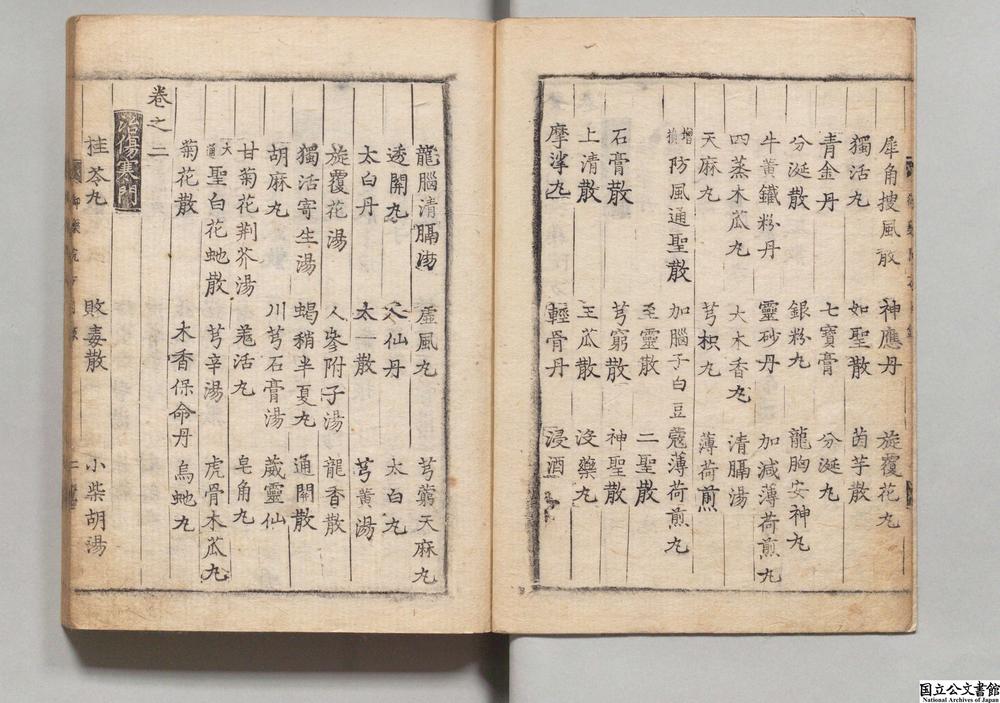 犀角搜風散 神應丹 旋覆花丸
獨活丸 如聖散 茵芋散
青金丹 七寶膏 分涎丸
分涎散 銀粉丸 龍胸安神丸
牛黃鐵粉丹 靈砂丹 加減薄荷煎丸
四蒸木瓜丸 大木香丸 清膈湯
天麻丸 芎枳丸 薄荷煎
增損防風通聖散 加腦子白豆蔻薄荷煎丸
石膏散 至靈散 二聖散
上清散 芎窮散 神聖散
王瓜散 沒藥丸
摩挲丸 輕骨丹 浸酒
龍腦清膈湯 虛風丸 芎藭天麻丸
透關丸 八仙丹 太白丸
太白丹 太一散 芎黃湯
旋覆花湯 人參附子湯 龍香散
獨活寄生湯 蝎稍半夏丸 通關散
胡麻丸 川芎石膏湯 葳靈仙
甘菊花荆芥湯 羗活丸 皂角丸
大通聖白花虵散 芎辛湯 虎骨木瓜丸
菊花散 木香保命丹 烏虵丸
卷之二
治傷寒門
桂苓丸 敗毒散 小柴胡湯
国立公文書館
National Archives of Japan